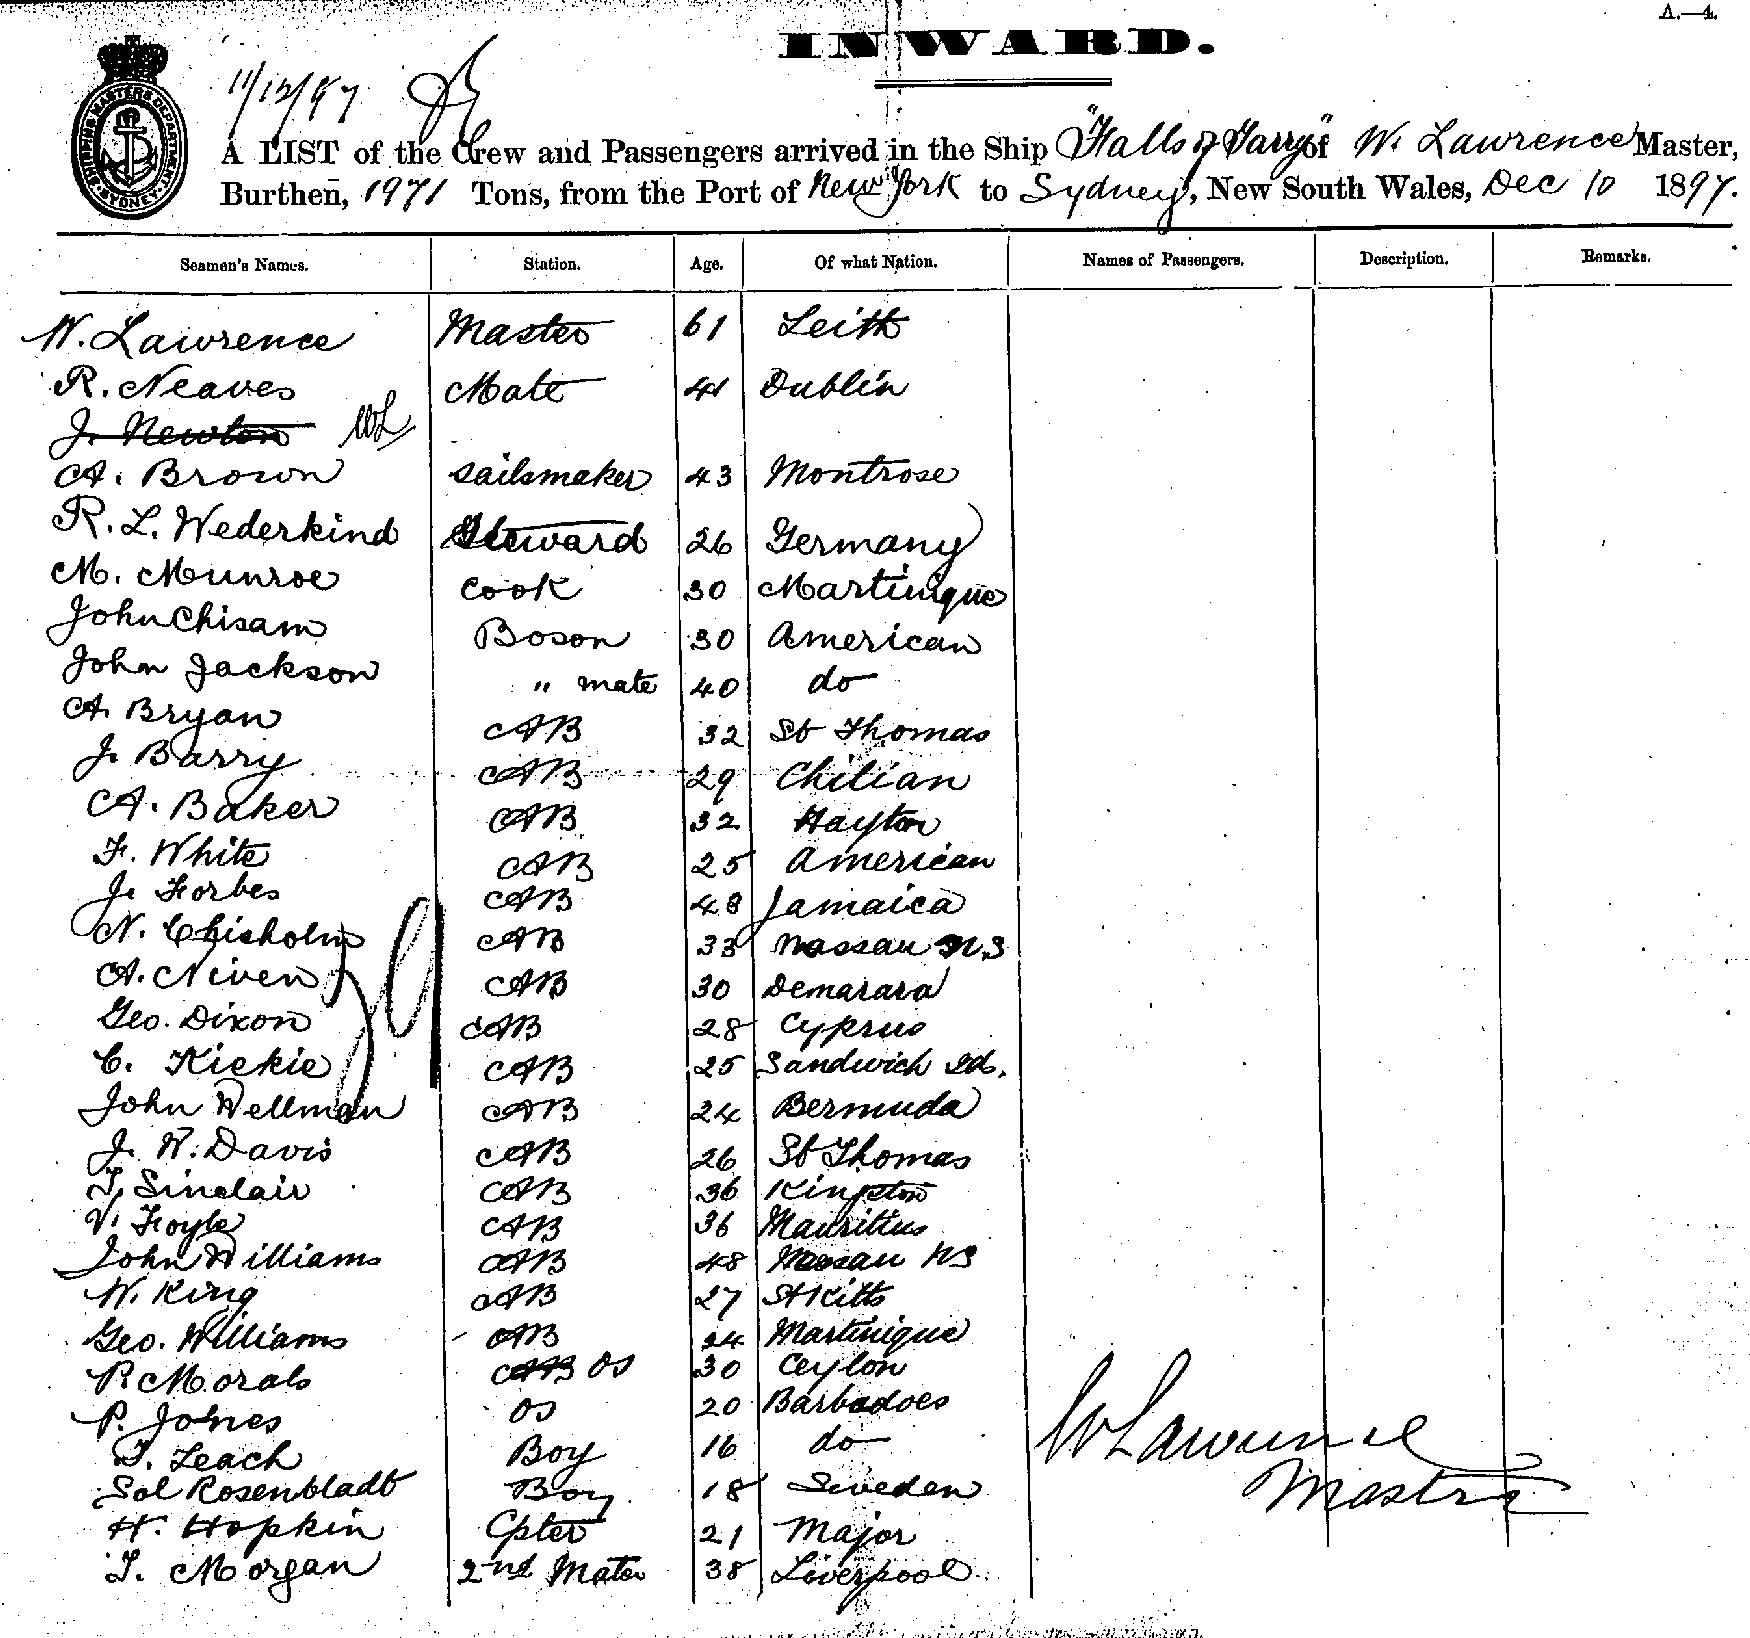 A.—4.
INWARD.
11/12/97
SHIPPING MASTERS DEPARTMENT SYDNEY
A LIST of the Crew and Passengers arrived in the Ship "Falls of Garry" of W. Lawrence Master,
Burthen, 1971 Tons, from the Port of New York to Sydney, New South Wales, Dec 10 1897.
Seamen's Names. Station. Age. Of what Nation. Names of Passengers. Description. Remarks.
W. Lawrence Master 61 Leith
R. Neaves Mate 41 Dublin
J. Newton WL
A. Brown Sailsmaker 43 Montrose
R. L. Wederkind Steward 26 Germany
M. Munroe Cook 30 Martinique
John Chisam Boson 30 American
John Jackson " mate 40 do
A. Bryan AB 32 St Thomas
J. Barry AB 29 Chilian
A. Baker AB 32 Hayton
F. White AB 25 American
J. Forbes AB 48 Jamaica
N. Chisholm AB 33 Nassau N.S
A. Niven AB 30 Demarara
Geo. Dixon AB 28 Cyprus
C. Kiekie AB 25 Sandwich Ids.
John Wellman AB 24 Bermuda
J. W. Davis AB 26 St Thomas
T. Sinclair AB 36 Kingston
V. Foyle AB 36 Mauritius
John Williams AB 48 Nassau NS
W. King AB 27 St Kitts
Geo. Williams AB 24 Martinique
P. Morals AB OS 30 Ceylon
P. Jones OS 20 Barbadoes
T. Leach Boy 16 do
Sol Rosenbladt Boy 18 Sweden
H. Hopkin Cpter 21 Major
T. Morgan 2nd Mate 38 Liverpool
W Lawrence
Master